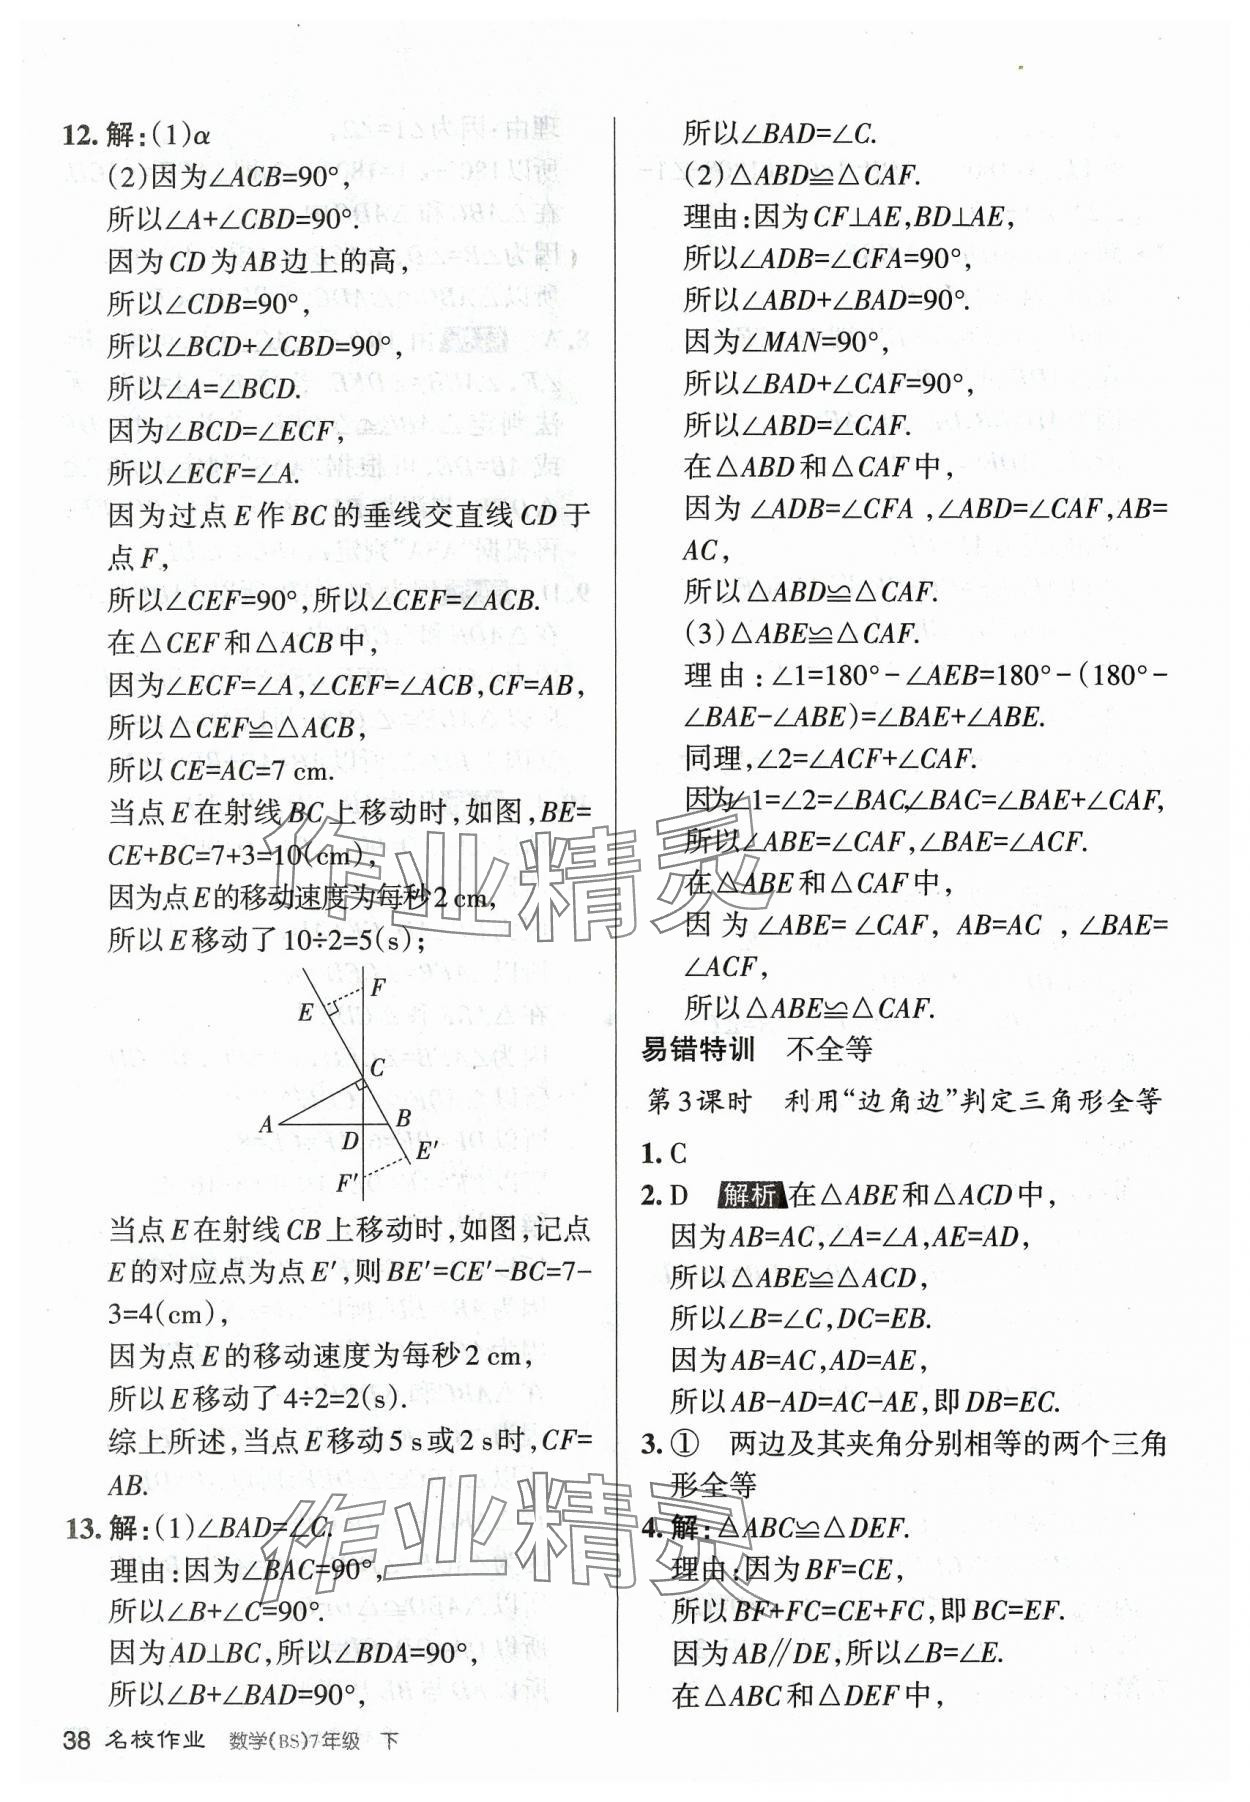 12. 解:(1)α
(2)因为∠ACB=90°,
所以∠A+∠CBD=90°.
因为CD为AB边上的高,
所以∠CDB=90°,
所以∠BCD+∠CBD=90°,
所以∠A=∠BCD.
因为∠BCD=∠ECF,
所以∠ECF=∠A.
因为过点E作BC的垂线交直线CD于
点F,
所以∠CEF=90°,所以∠CEF=∠ACB.
在△CEF和△ACB中,
因为∠ECF=∠A,∠CEF=∠ACB,CF=AB,
所以△CEF≌△ACB,
所以CE=AC=7 cm.
当点E在射线BC上移动时,如图,BE=
CE+BC=7+3=10(cm),
因为点E的移动速度为每秒2 cm,
所以E移动了10÷2=5(s);
F
E
C
A
B
D
E′
F′
当点E在射线CB上移动时,如图,记点
E的对应点为点E′,则BE′=CE′-BC=7-
3=4(cm),
因为点E的移动速度为每秒2 cm,
所以E移动了4÷2=2(s).
综上所述,当点E移动5 s或2 s时,CF=
AB.
13. 解:(1)∠BAD=∠C.
理由:因为∠BAC=90°,
所以∠B+∠C=90°.
因为AD⊥BC,所以∠BDA=90°,
所以∠B+∠BAD=90°,
所以∠BAD=∠C.
(2)△ABD≌△CAF.
理由:因为CF⊥AE,BD⊥AE,
所以∠ADB=∠CFA=90°,
所以∠ABD+∠BAD=90°.
因为∠MAN=90°,
所以∠BAD+∠CAF=90°,
所以∠ABD=∠CAF.
在△ABD和△CAF中,
因为∠ADB=∠CFA,∠ABD=∠CAF,AB=
AC,
所以△ABD≌△CAF.
(3)△ABE≌△CAF.
理由:∠1=180°-∠AEB=180°-(180°-
∠BAE-∠ABE)=∠BAE+∠ABE.
同理,∠2=∠ACF+∠CAF.
因为∠1=∠2=∠BAC,∠BAC=∠BAE+∠CAF,
所以∠ABE=∠CAF,∠BAE=∠ACF.
在△ABE和△CAF中,
因为∠ABE=∠CAF, AB=AC ,∠BAE=
∠ACF,
所以△ABE≌△CAF.
易错特训 不全等
第3课时 利用“边角边”判定三角形全等
1. C
2. D 解析 在△ABE和△ACD中,
因为AB=AC,∠A=∠A,AE=AD,
所以△ABE≌△ACD,
所以∠B=∠C,DC=EB.
因为AB=AC,AD=AE,
所以AB-AD=AC-AE,即DB=EC.
3. ① 两边及其夹角分别相等的两个三角
形全等
4. 解:△ABC≌△DEF.
理由:因为BF=CE,
所以BF+FC=CE+FC,即BC=EF.
因为AB∥DE,所以∠B=∠E.
在△ABC和△DEF中,
38 名校作业 数学(BS)7年级 下
作业精灵
作业精灵